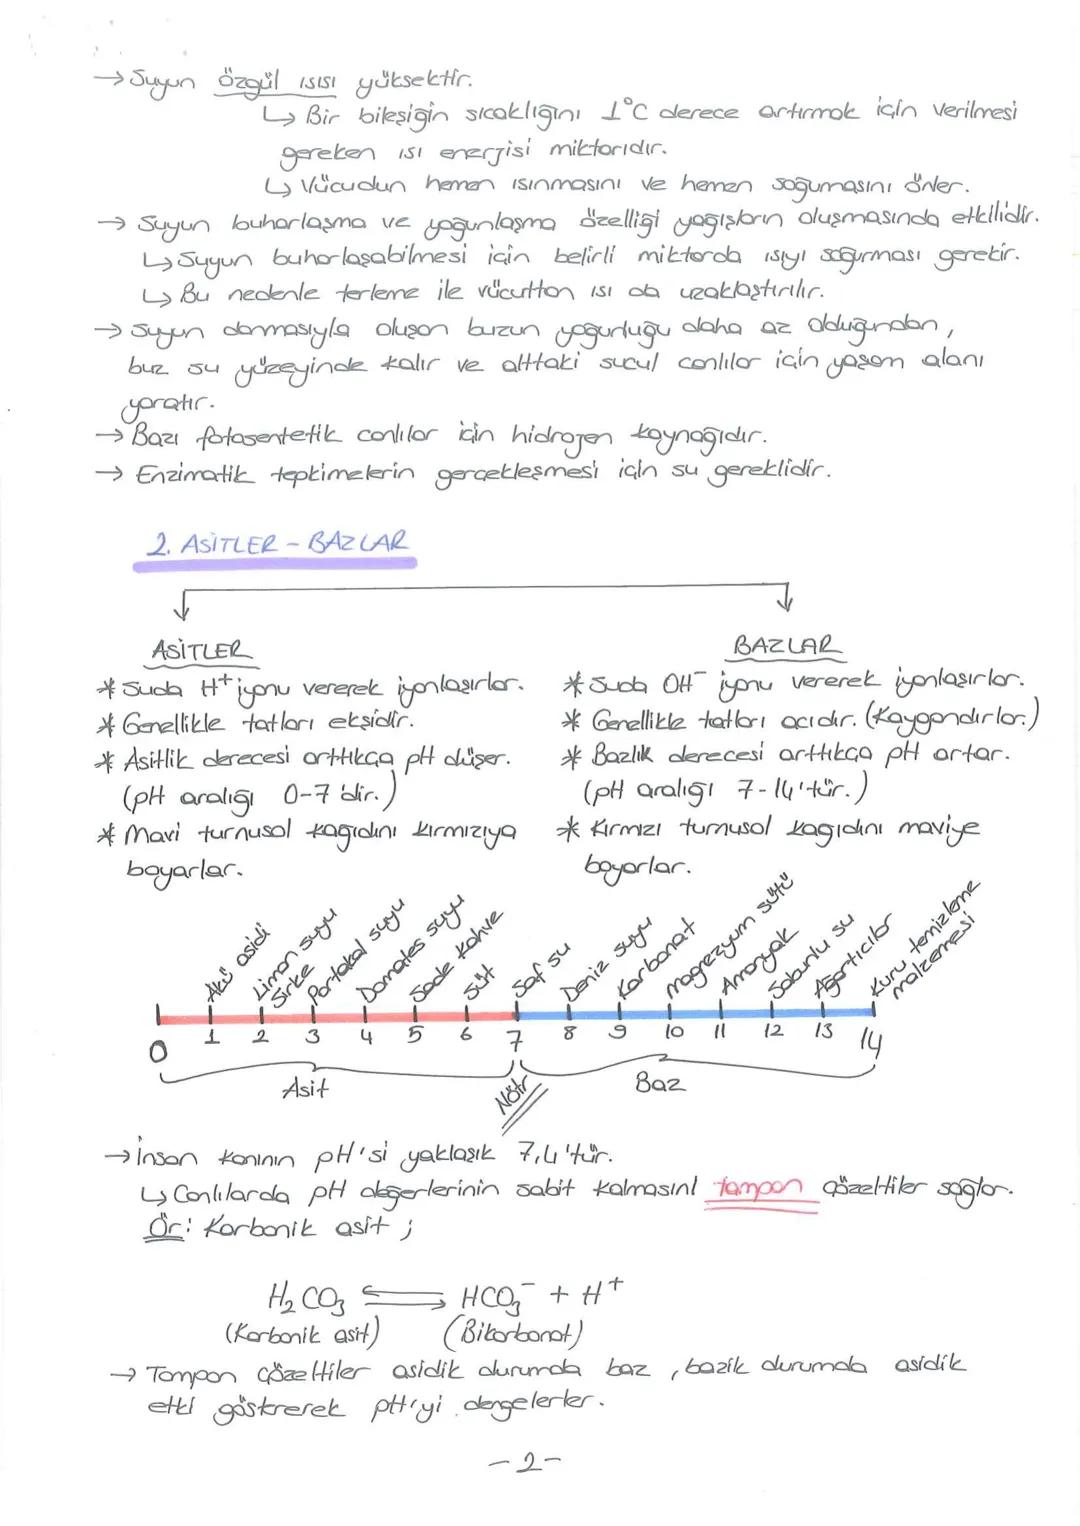 → Suyun özgül ısısı yüksektir.
↳ Bir bileşiğin sıcaklığını 1°C derece artırmak için verilmesi
gereken ısı enerjisi miktarıdır.
↳ Vücudun hemen ısınmasını ve hemen soğumasını önler.
→ Suyun buharlaşma ve yoğunlaşma özelliği yağışların oluşmasında etkilidir.
↳ Suyun buharlaşabilmesi için belirli miktarda ısıyı soğurması gerekir.
↳ Bu nedenle terleme ile vücuttan ısı da uzaklaştırılır.
→ Suyun donmasıyla oluşan buzun yoğunluğu daha az olduğundan,
buz su yüzeyinde kalır ve alttaki sucul canlılar için yaşam alanı
yaratır.
→ Bazı fotosentetik canlılar için hidrojen kaynağıdır.
→ Enzimatik tepkimelerin gerçekleşmesi için su gereklidir.
2. ASİTLER - BAZLAR
ASİTLER
* Suda H⁺ iyonu vererek iyonlaşırlar.
* Genellikle tatları ekşidir.
* Asitlik derecesi arttıkça pH düşer.
(pH aralığı 0-7'dir.)
* Mavi turnusol kağıdını kırmızıya
boyarlar.
BAZLAR
* Suda OH⁻ iyonu vererek iyonlaşırlar.
* Genellikle tatları acıdır. (Kaygandırlar.)
* Bazlık derecesi arttıkça pH artar.
(pH aralığı 7-14'tür.)
* Kırmızı turnusol kağıdını maviye
boyarlar.
Akü asidi
Limon suyu
Sirke
Portakal suyu
Domates suyu
Sade kahve
Süt
Saf su
Deniz suyu
Karbonat
magnezyum sütü
Amonyak
Sabunlu su
Ağartıcılar
Kuru temizleme
malzemesi
0 1 2 3 4 5 6 7 8 9 10 11 12 13 14
Asit
Nötr
Baz
→ İnsan kanının pH'si yaklaşık 7,4'tür.
↳ Canlılarda pH değerlerinin sabit kalmasını tampon çözeltiler sağlar.
Ör: Karbonik asit ;
H₂CO₃ ⇌ HCO₃⁻ + H⁺
(Karbonik asit) (Bikarbonat)
→ Tampon çözeltiler asidik durumda baz, bazik durumda asidik
etki göstererek pH'yi dengelerler.
-2-